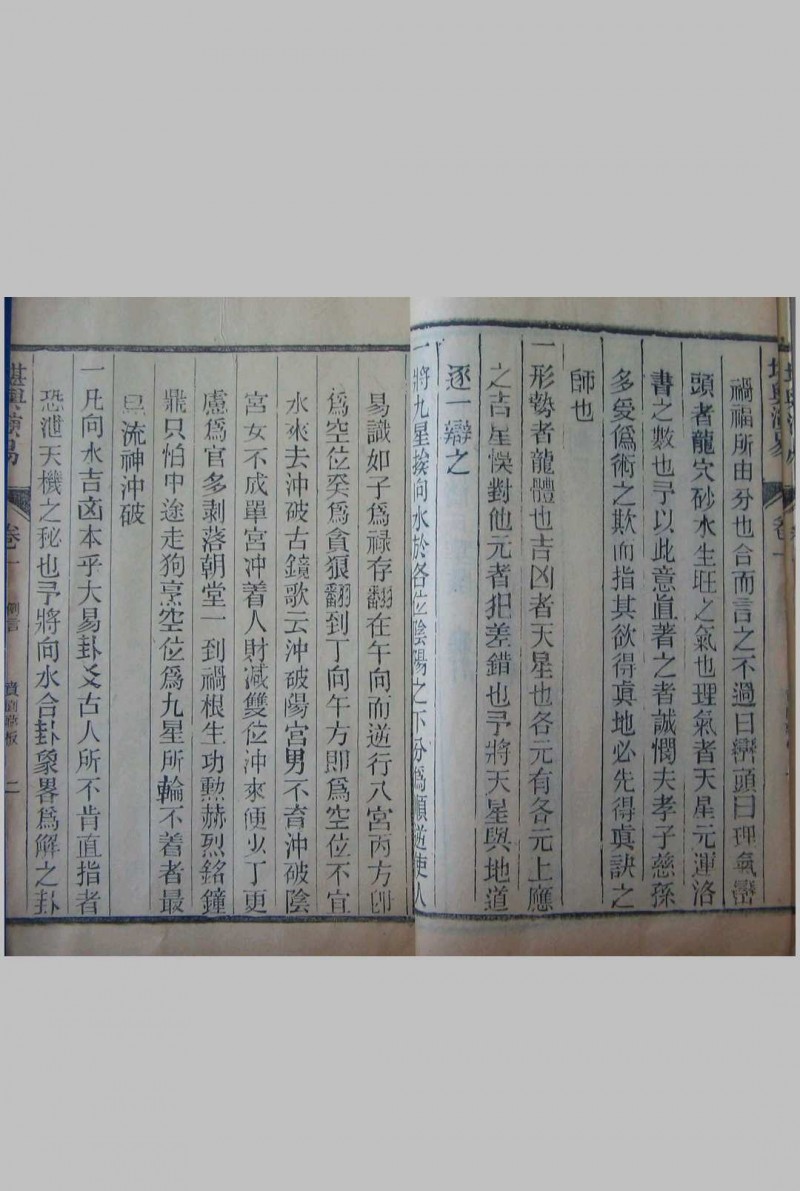 禍福所由分也合而言之不過曰巒頭曰理氣巒
頭者龍穴砂水生旺之氣也理氣者天星元運洛
書之數也予以此意直著之者誠憫夫孝子慈孫
多受僞術之欺而指其欲得眞地必先得眞訣之
師也
一形勢者龍體也吉凶者天星也各元有各元上應
之吉星悞對他元者犯差錯也予將天星與地道
逐一辯之
一將九星挨向水於各位陰陽之下分爲順逆使人
易識如子爲禄存翻在午向而逆行八宮丙方卽
爲空位癸爲貪狼翻到丁向午方即爲空位不宜
水來去沖破古鏡歌云沖破陽宮男不育沖破陰
宮女不成單宮沖着人財減雙位沖來便少丁更
慮爲官多剥落朝堂一到禍根生功勲赫烈銘鐘
鼎只怕中途走狗烹空位爲九星所輪不着者最
忌流神沖破
一凡向水吉凶本乎大易卦爻古人所不肯直指者
恐泄天機之秘也予將向水合卦象畧爲解之卦
堪輿演易
卷一
側言
二